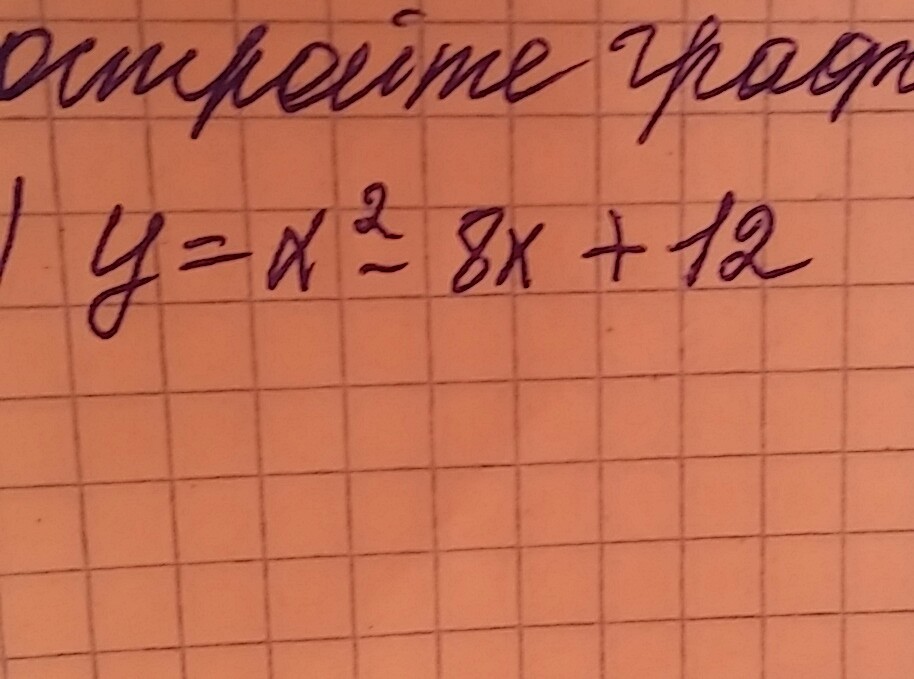 остройте граф
) y = x² - 8x + 12